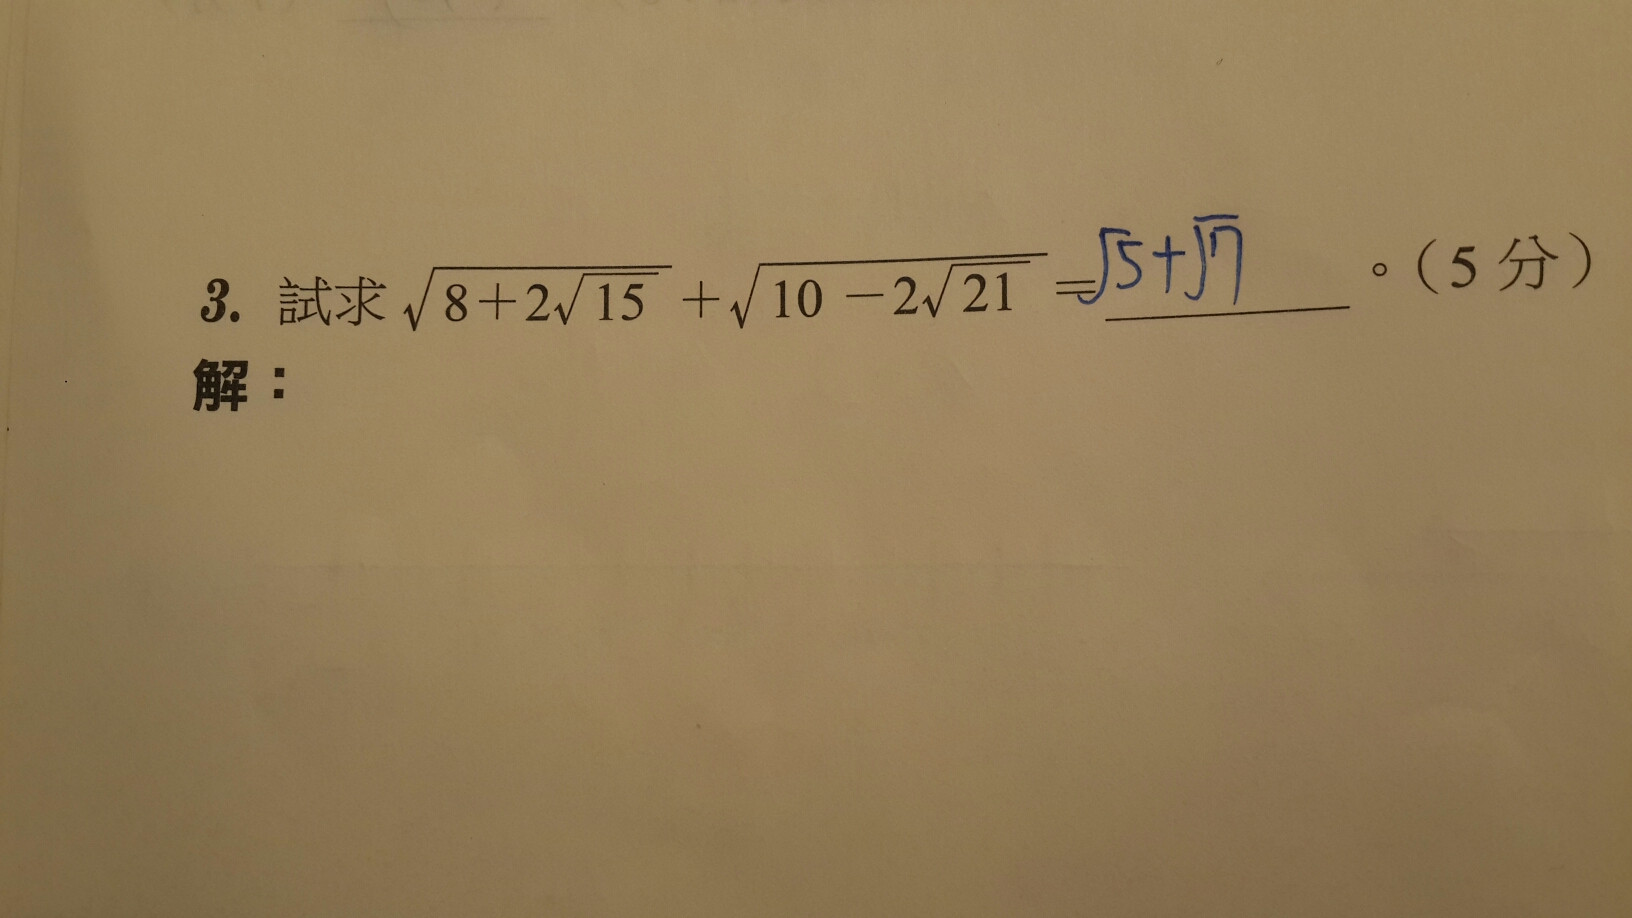 3. 試求 √(8+2√15) + √(10-2√21) = √5+√7 。(5 分)
解：